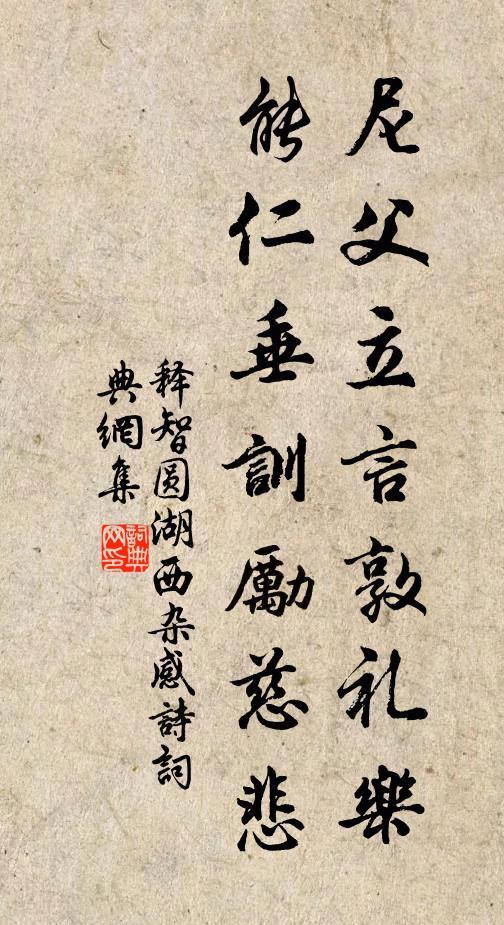 尼父立言敦礼樂
能仁垂訓勵慈悲
释智圆湖西杂感詩詞
典網集
詞典网印